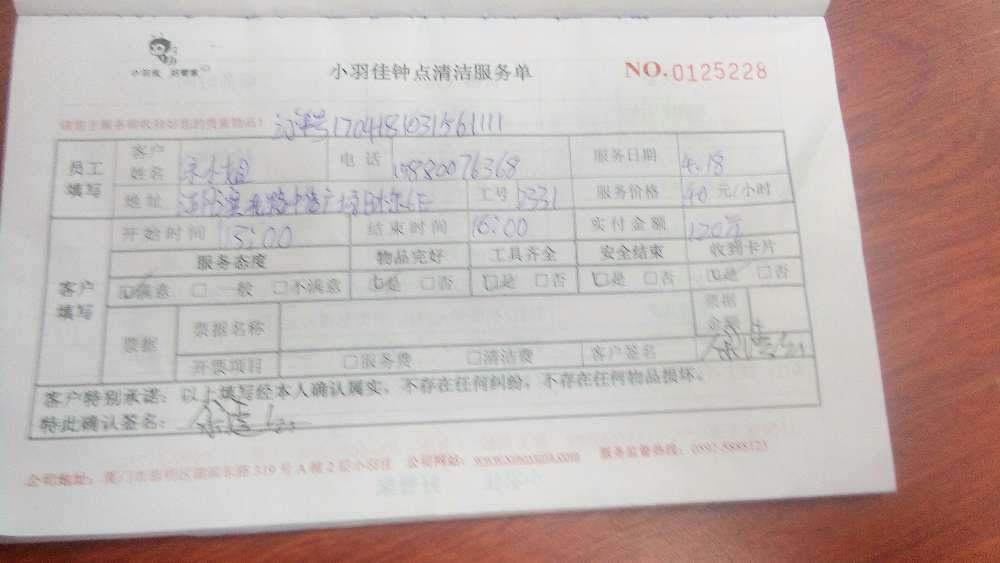 小羽佳 好管家
小羽佳钟点清洁服务单
NO.0125228
请您于服务前收拾好您的贵重物品!
订单号1704181031561111
员工填写
客户姓名 余小姐 电话 15880076368 服务日期 4.18
地址 工号 2331 服务价格 40 元/小时
客户填写
开始时间 13:00 结束时间 16:00 实付金额 120元
服务态度 物品完好 工具齐全 安全结束 收到卡片
☑满意 □一般 □不满意 ☑是 □否 ☑是 □否 ☑是 □否 ☑是 □否
票据 票据名称 票据金额
开票项目 □服务费 □清洁费 客户签名
客户特别承诺:以上填写经本人确认属实,不存在任何纠纷,不存在任何物品损坏。
特此确认签名:
公司地址:厦门市思明区湖滨东路319号A幢2层小羽佳 公司网站:www.xiaoyujia.com 服务监督热线:0592-5888123